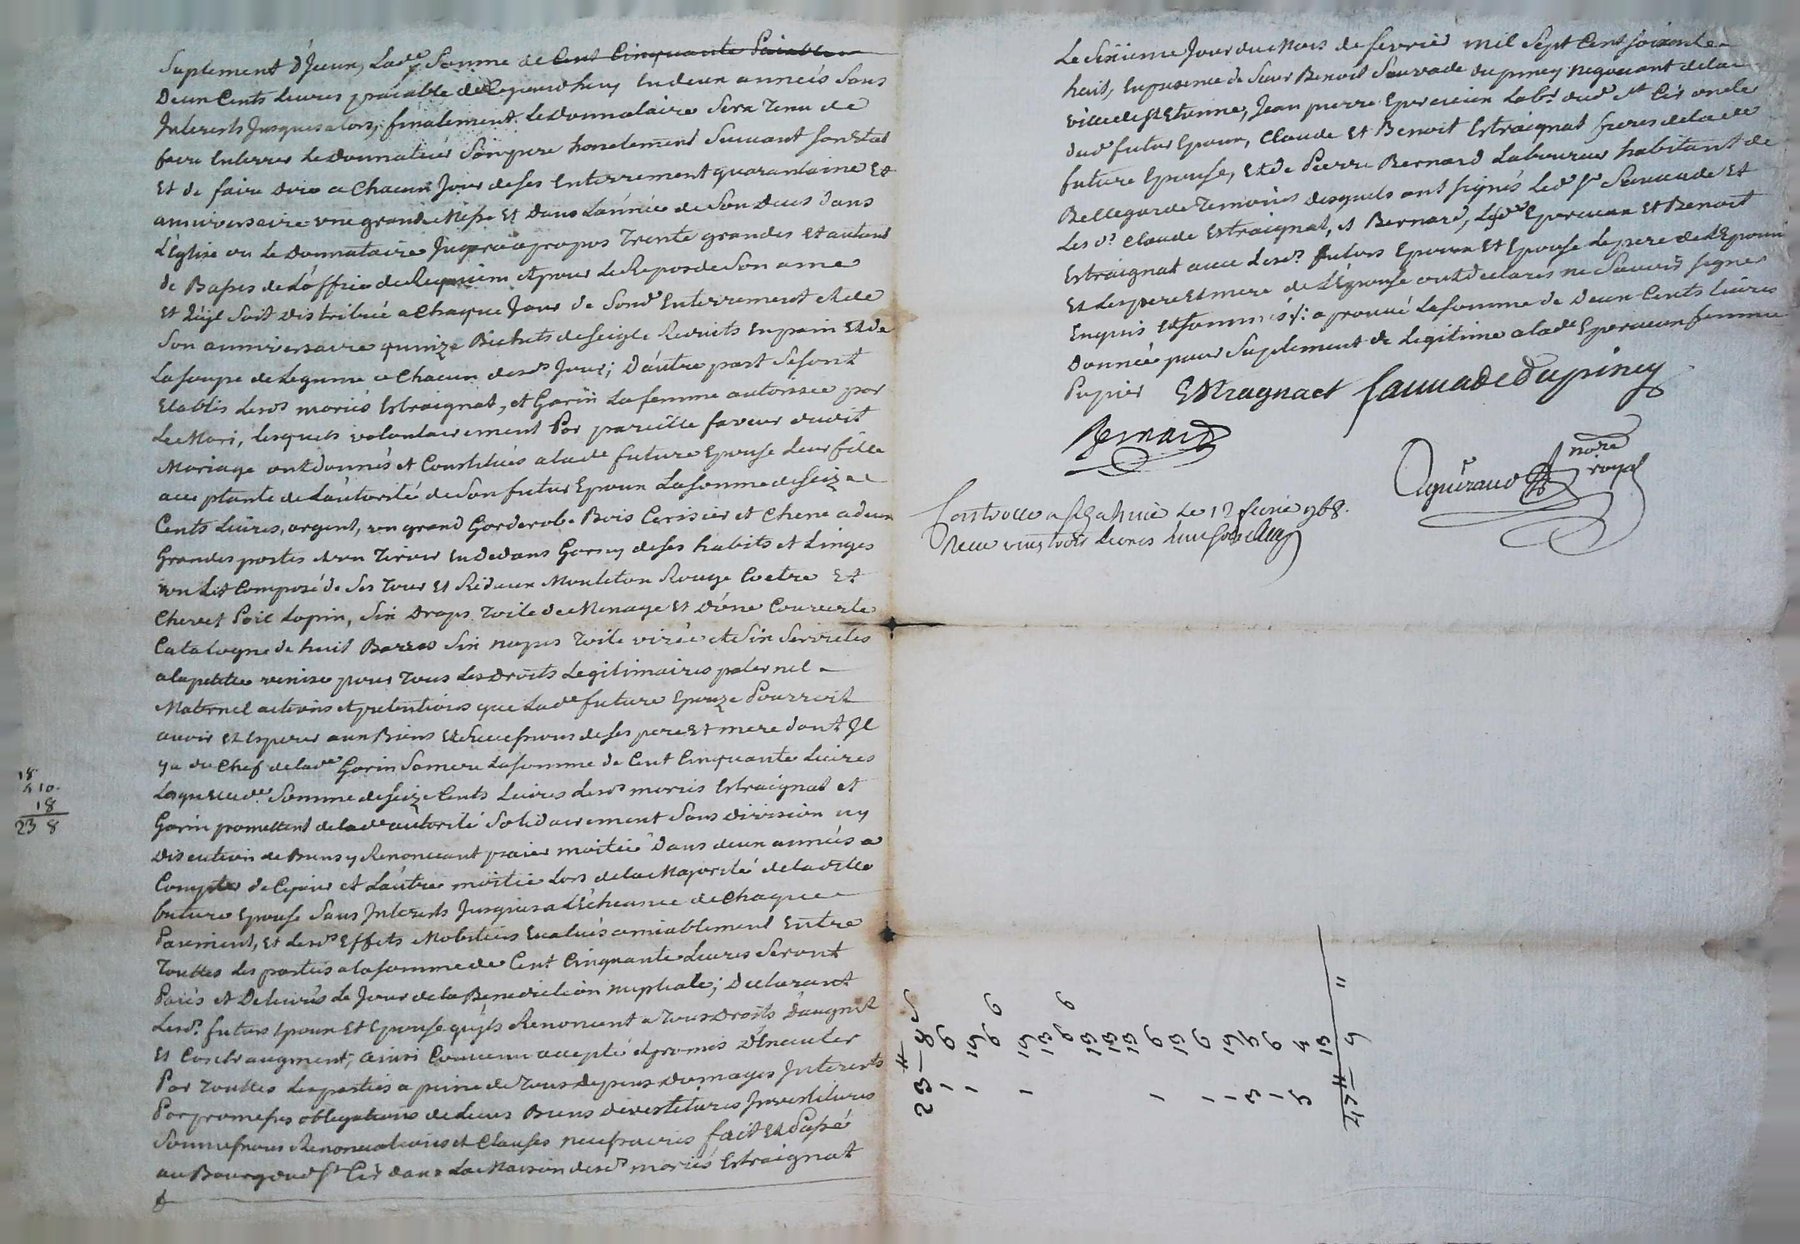 Suplement d'Jceux, Lade Somme de Cent Cinquante Paiable
Deux Cents Livres paiable de Cejourdhuy en deux années Sans
Interests Jusques alors, finalement Ledonnataire Sera Tenu de
faire Enterrer Le Donnateur Son pere honetement Suivant Son Etat
Et de faire dire a Chacun Jour de ses Enterrement quarantaine Et
anniversaire une grande Messe Et Dans L'année de Son Deces dans
L'Eglise ou Le Donnataire Jugera apropos Trente grandes Et autant
de Basses de L'office de Requiem et pour Le Repos de Son ame
Et qu'jl Soit Distribué a Chaque Jour de Sond Enterrement et de
Son anniversaire quinze Bichets de Seigle Reduits En pain Et de
La Soupe de Legume a Chacun desds Jours; D'autre part Se Sont
Etablis Lesds mariés Estraignat, et Garin La femme autorisée par
Le Mari, Lesquels volontairement Par pareille faveur dudit
Mariage ont donnés et Constitués a lade future Epouse Leur fille
acceptante de L'autorité de Son futur Epoux La Somme de Seize
Cents Livres, argent, un grand Garderobe Bois Cerisier et Chene a deux
Grandes portes et un Tiroir En dedans Garny de ses habits et Linges
un Lit Composé de Ses Tour Et Rideaux Monteton Rouge Coetre Et
Chevet Poil Lapin, Six Draps Toile de Menage Et D'une Couverte
Catalogne de huit Barres Six napes Toile virée et Six Serviettes
a la petite venise pour Tous Les Droits Legitimaires paternel
Maternel actions et pretentions que Lade future Epouze Pourroit
avoir Et Esperer aux Biens Et Successions de ses pere Et mere dont Jl
y a du Chef de lade Garin Sa mere La Somme de Cent Cinquante Livres
Laquelle de Somme de Seize Cents Livres Lesds mariés Estraignat et
Garin promettent de lade autorité Solidairement Sans division ny
Discution de Biens y Renoncant paier moitié Dans deux années a
Compter de Cejour et L'autre moitié Lors de la Majorité de ladite
future Epouse Sans Jnterests Jusques a L'Echeance de Chaque
Paiement, Et Lesds Effets Mobiliers Evalués amiablement Entre
Touttes Les parties a la Somme de Cent Cinquante Livres Seront
Paiés et Delivrés Le Jour de la Benediction nuptiale; Declarant
Lesds futurs Epoux Et Epouse qu'jls Renoncent a Tous Droits d'augment
Et Contraugment, ainsi Convenu accepté et promis D'Executer
Par Touttes Les parties a peine de Tous Depens Domages Jnterests
Par promesses obligations de Leurs Biens devestitures Jnvestitures
Soumissions Renonciations et Clauses necessaires fait Et Passé
au Bourg dud St Cir dans La Maison desds mariés Estraignat
18
10.
18
23 8
Le Sixieme Jour du Mois de fevrier mil Sept Cent Soixante
huit, En presence de Sieur Benoit Sauvade dupiney negociant de la
ville de St Etienne, Jean pierre Epercieux Labr dud St Cir oncle
dud futur Epoux, Claude Et Benoit Estraignat freres de lade
future Epouse, Et de Pierre Bernard Laboureur habitant de
Bellegarde Temoins desquels ont signés Led Sr Sauvade Et
Lesds Claude Estraignat, et Bernard, Led Epercieux Et Benoit
Estraignat avec Lesds futurs Epoux Et Epouse Le pere de L'Epoux
Et Les pere Et mere de L'Epouse ont declarés ne Savoir Signer
Enquis Et Sommés /: aprouvé La Somme de Deux Cents Livres
Donnée pour Suplement de Legitime a lade Epercieux femme
Papier
Estragnact Sauvade Dupiney
Bernard
nore royal
Controllé a le 17 fevrié 1768.
Receu vingt trois Livres
23 # 8 s
1 6
1 19
6 6
1 19
13
6 6
13
13
13
1 6
13
1 6
1 19
3 5
1 6
5 4
13
47 # 9 "